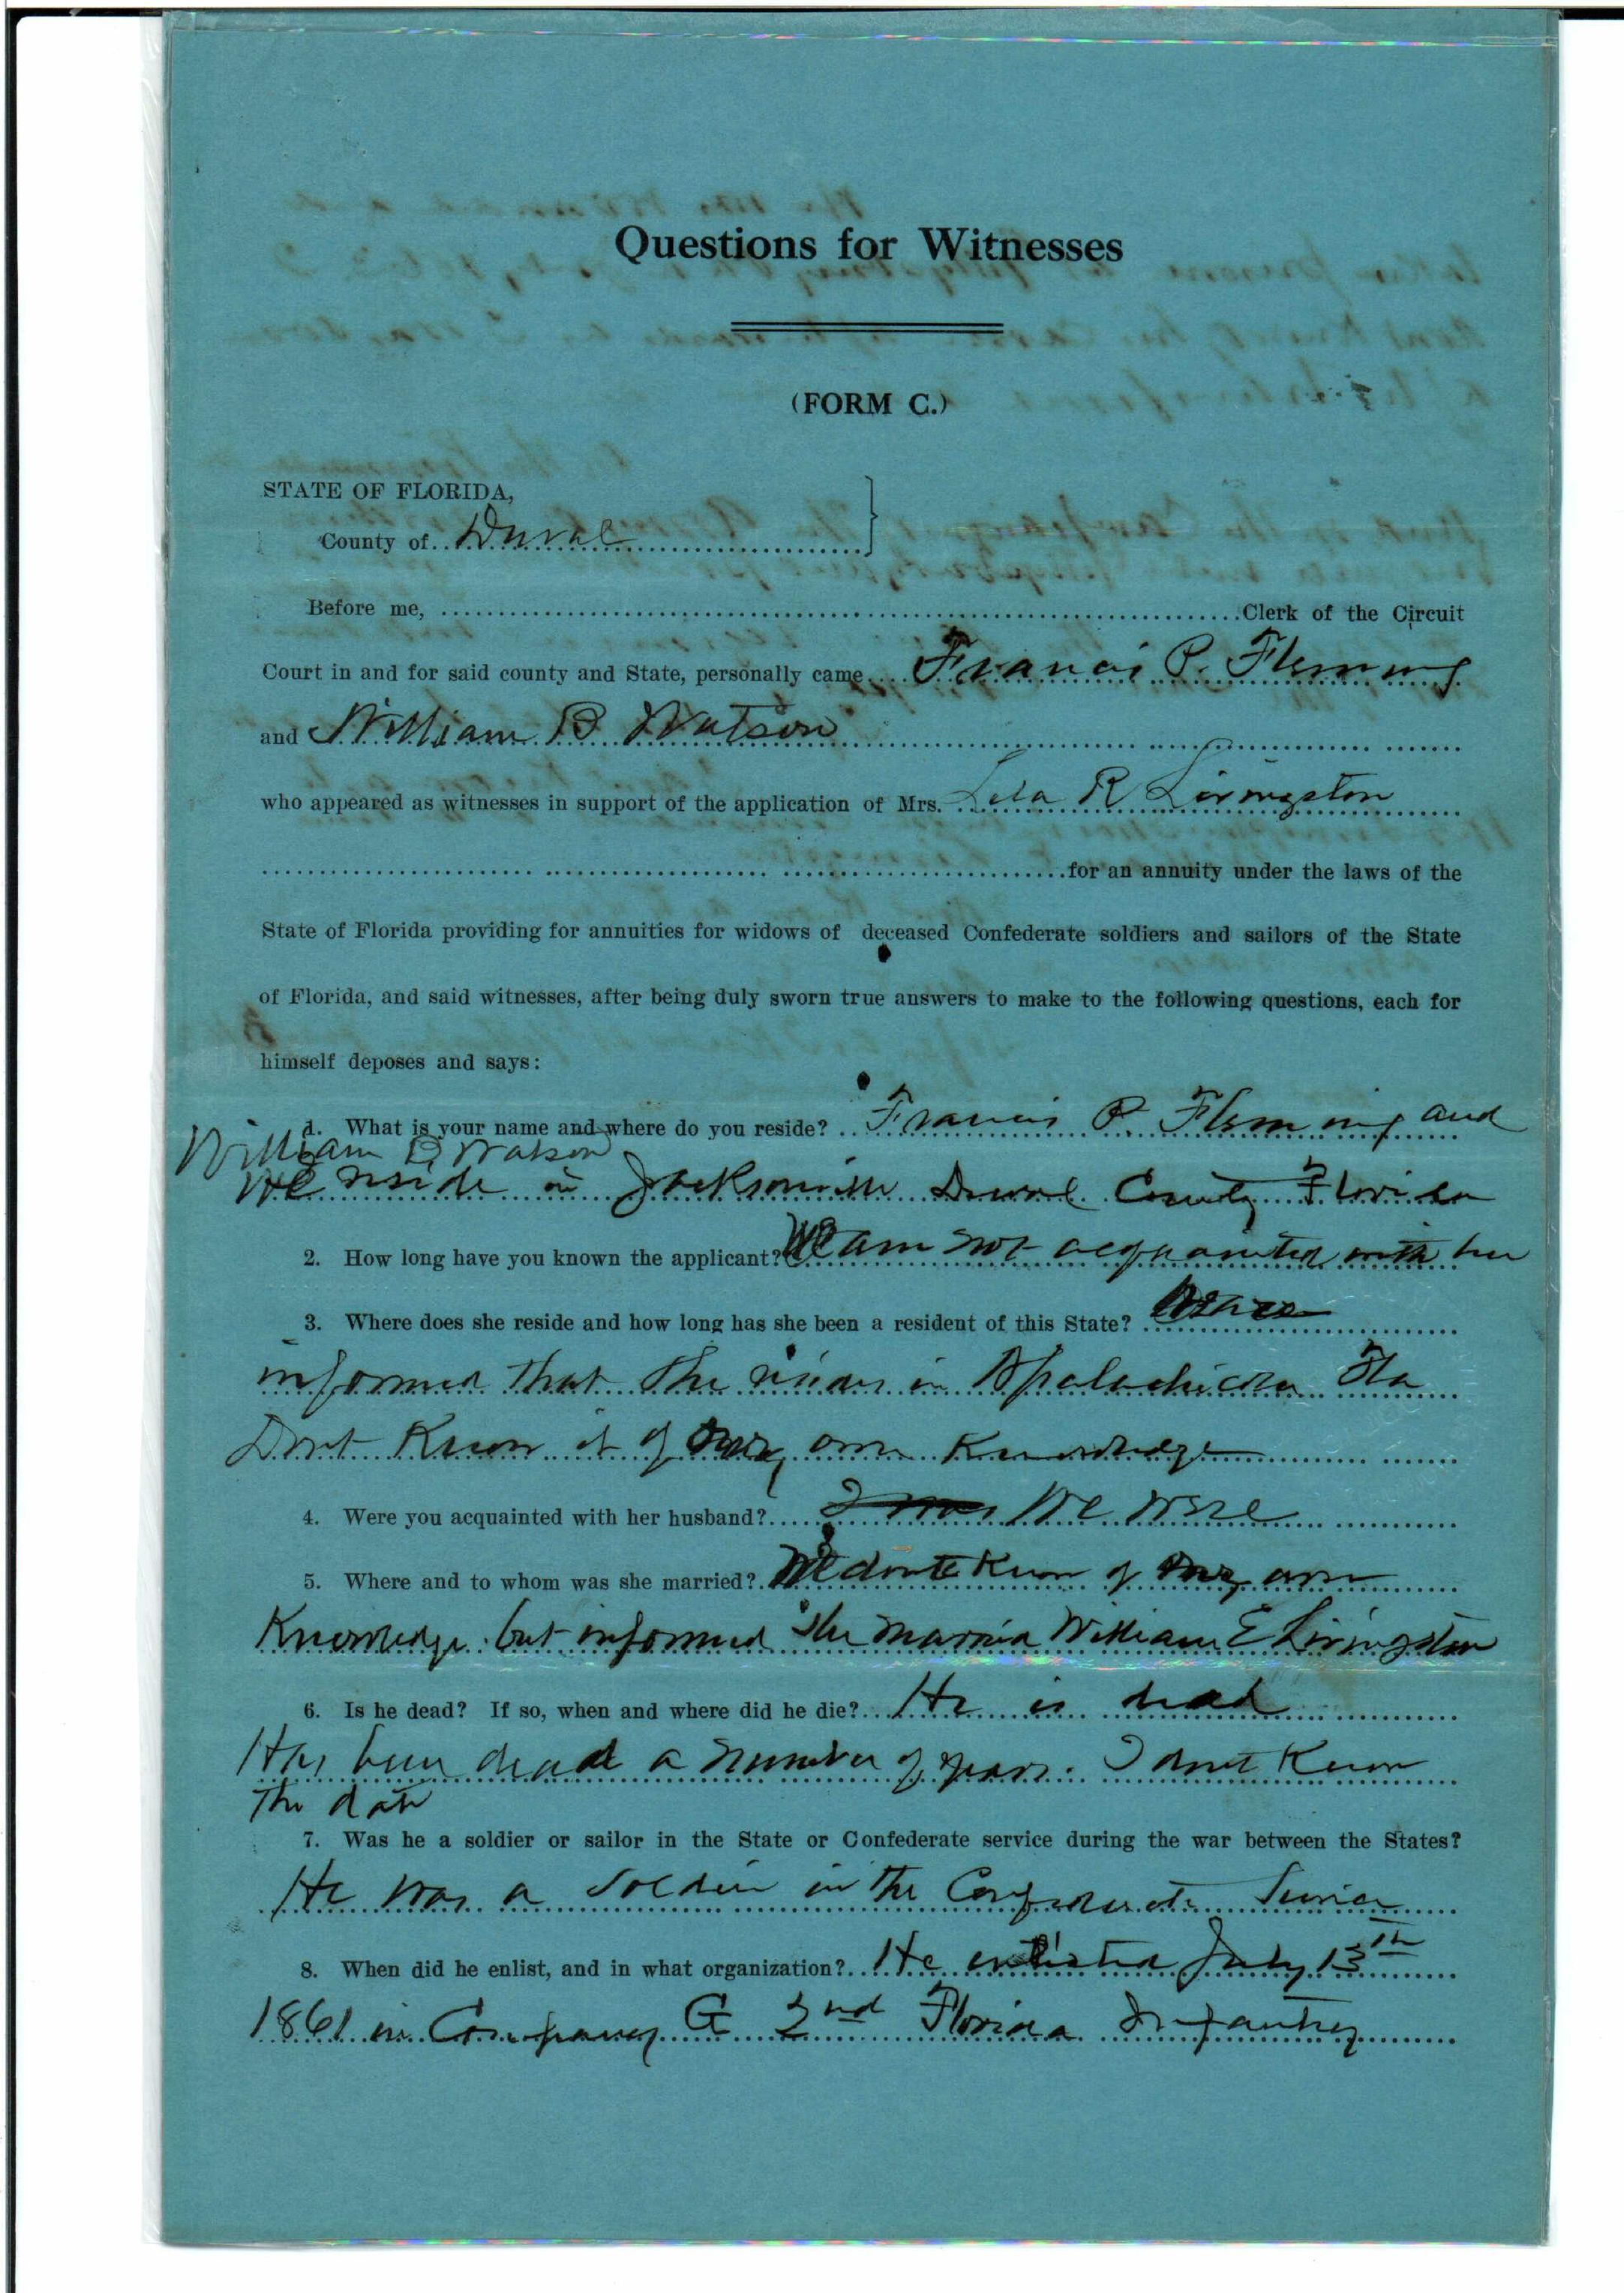 Questions for Witnesses
(FORM C.)
STATE OF FLORIDA,
County of Duval
Before me, Clerk of the Circuit
Court in and for said county and State, personally came Francis P. Fleming
and William B Watson
who appeared as witnesses in support of the application of Mrs. Lela R Livingston
for an annuity under the laws of the
State of Florida providing for annuities for widows of deceased Confederate soldiers and sailors of the State
of Florida, and said witnesses, after being duly sworn true answers to make to the following questions, each for
himself deposes and says:
1. What is your name and where do you reside? Francis P. Fleming and
William B Watson
We reside in Jacksonville Duval County Florida
2. How long have you known the applicant? We am not acquainted with her
3. Where does she reside and how long has she been a resident of this State?
informed that she resides in Apalachicola Fla
Dont Know it of our own Knowledge
4. Were you acquainted with her husband? I was We were
5. Where and to whom was she married? We dont Know of our own
Knowledge but informed she married William E Livingston
6. Is he dead? If so, when and where did he die? He is dead
Has been dead a number of years. I dont Know
the date
7. Was he a soldier or sailor in the State or Confederate service during the war between the States?
He was a soldier in the Confederate Service
8. When did he enlist, and in what organization? He enlisted July 13th
1861 in Company G 2nd Florida Infantry